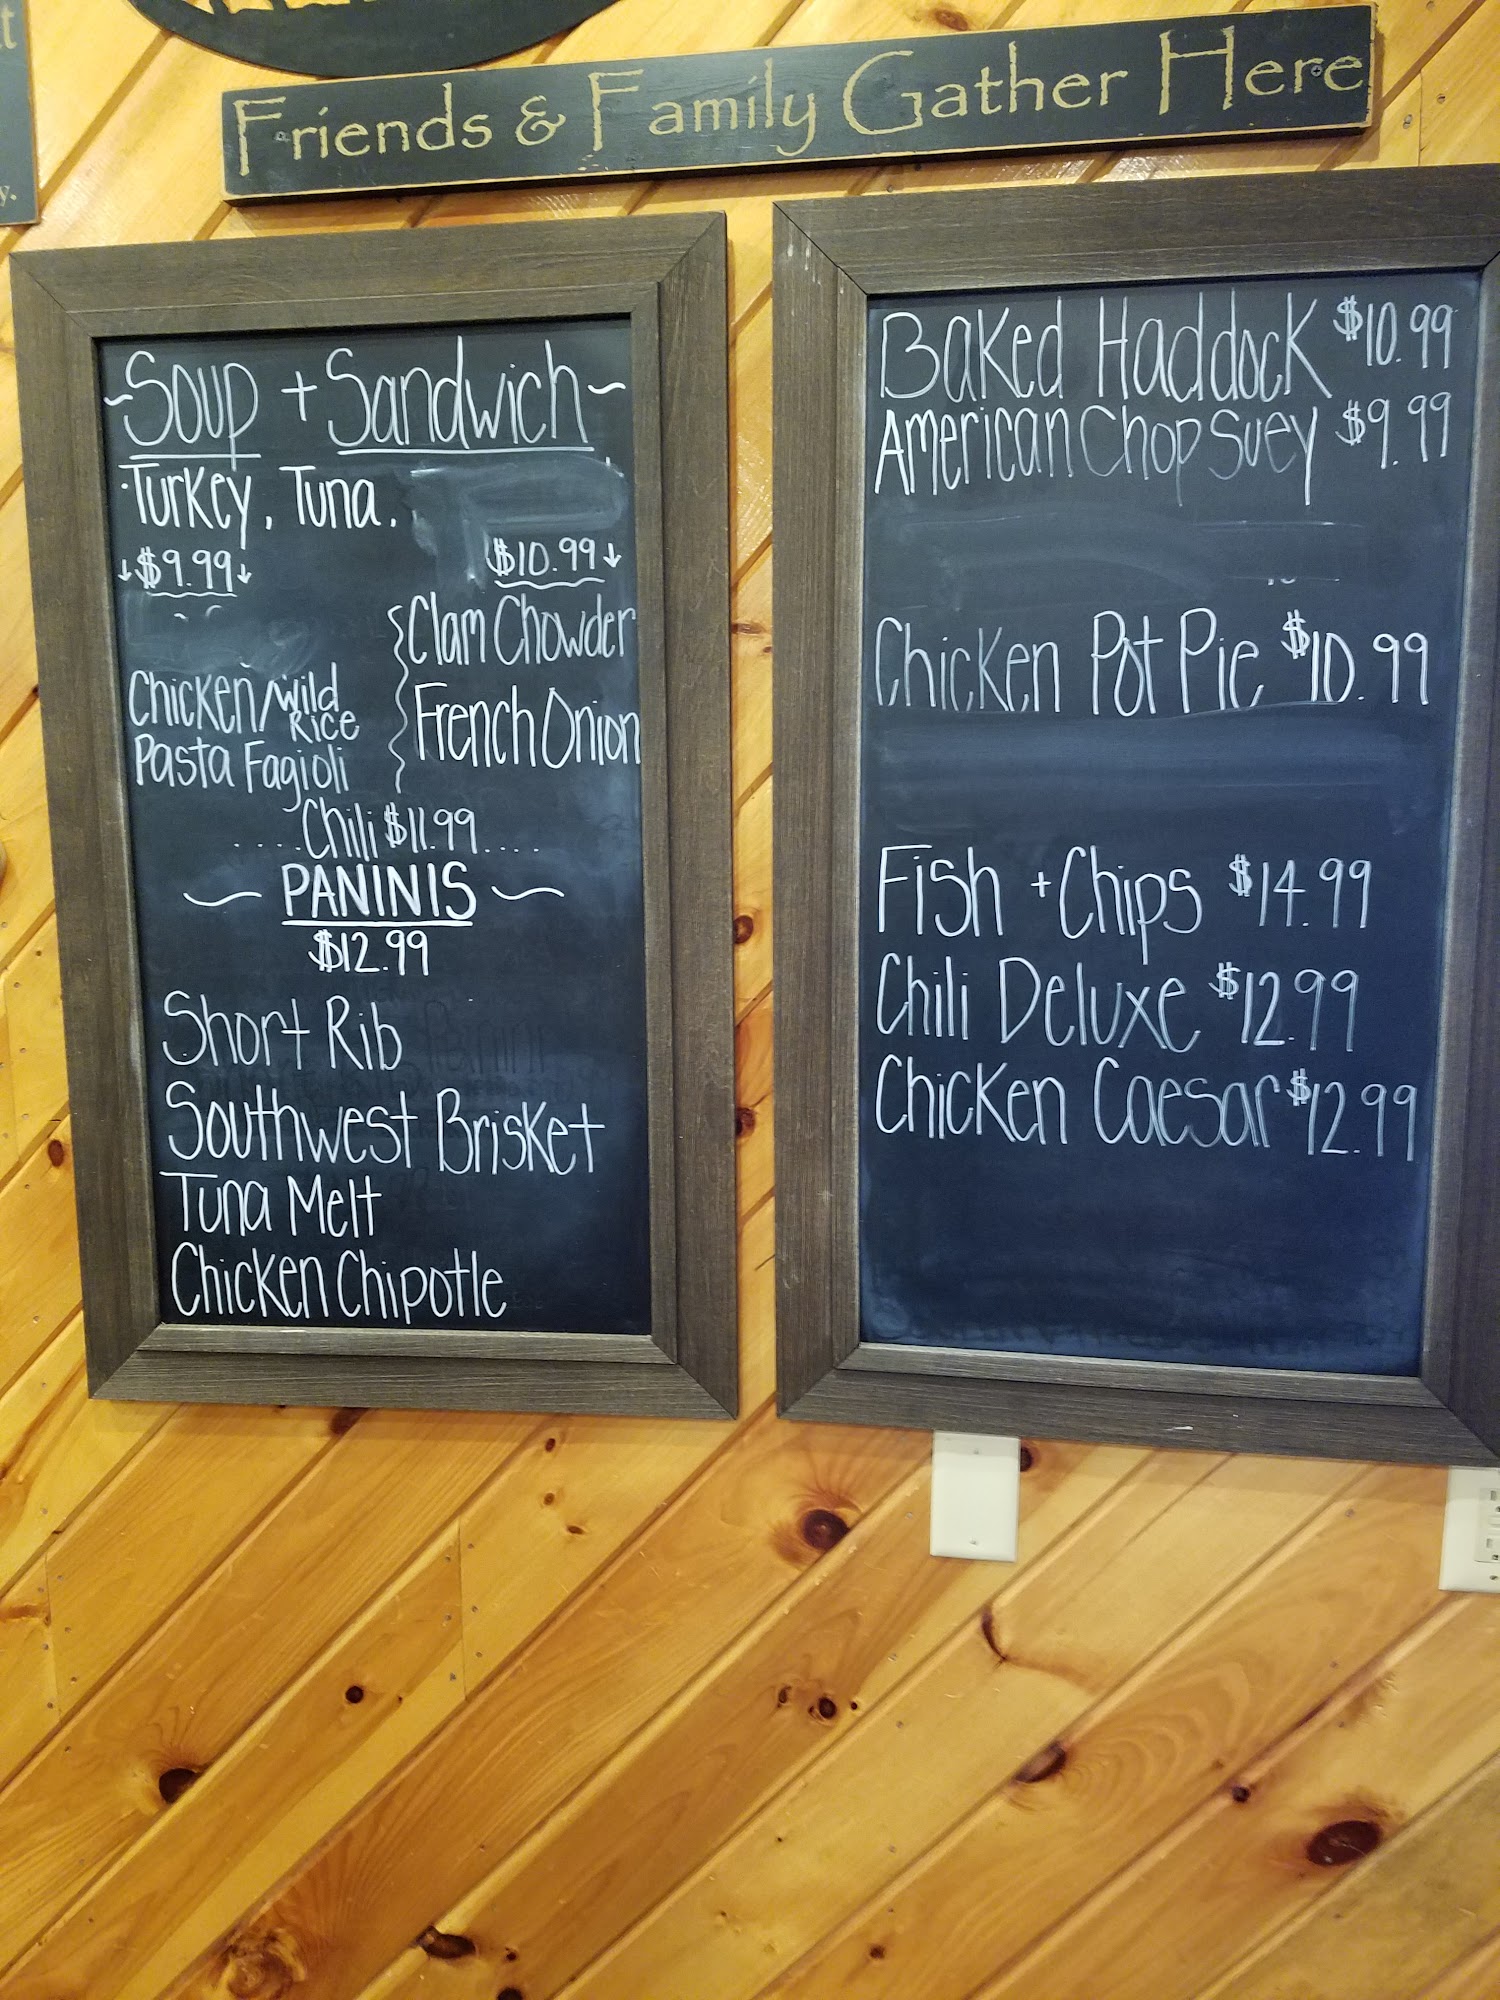 Friends & Family Gather Here
~Soup + Sandwich~
Turkey, Tuna,
↓$9.99↓
$10.99↓
Chicken/Wild Rice
Pasta Fagioli
Clam Chowder
French Onion
....Chili $11.99....
~ PANINIS ~
$12.99
Short Rib
Southwest Brisket
Tuna Melt
Chicken Chipotle
Baked Haddock $10.99
American Chop Suey $9.99
Chicken Pot Pie $10.99
Fish + Chips $14.99
Chili Deluxe $12.99
Chicken Caesar $12.99